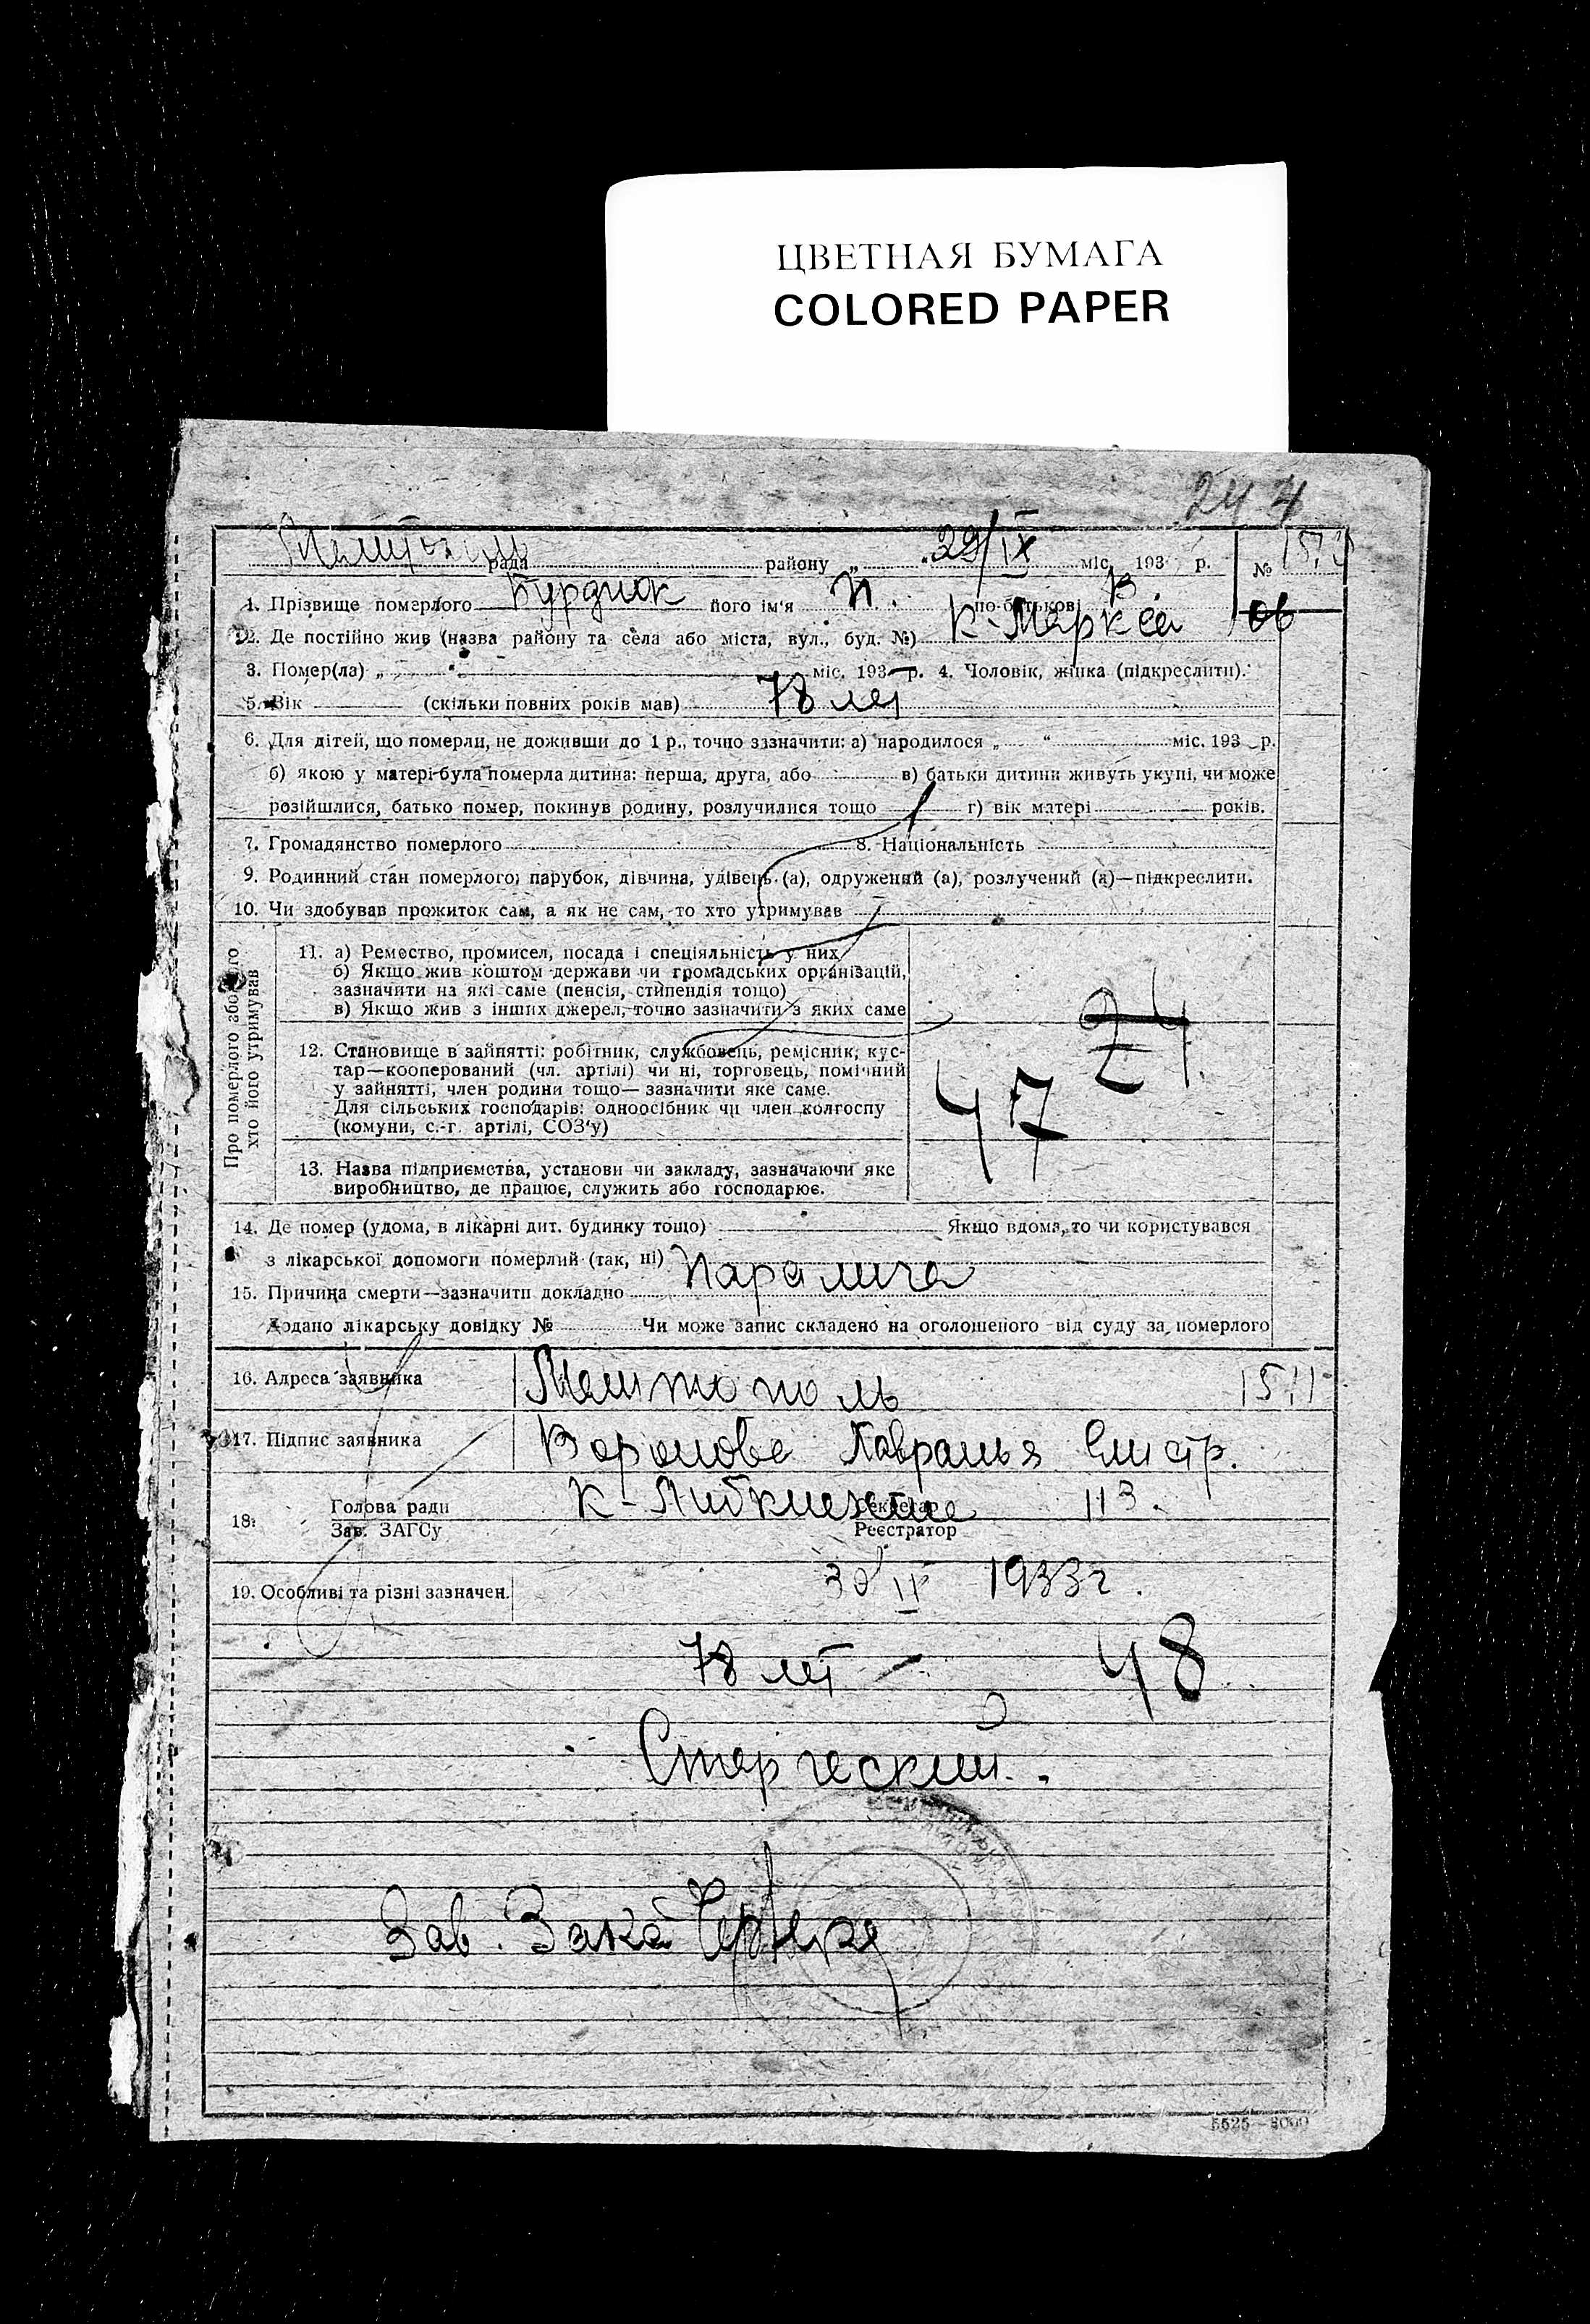 ЦВЕТНАЯ БУМАГА
COLORED PAPER
24
рада району „ 29/IX міс. 193 р. №
1. Прізвище померлого Бурдюк його ім'я П. по-батькові В.
2. Де постійно жив (назва району та села або міста, вул., буд. №) К-Маркса 106
3. Помер(ла) „ “ міс. 193 р. 4. Чоловік, жінка (підкреслити).
5. Вік (скільки повних років мав) 78 лет
6. Для дітей, що померли, не доживши до 1 р., точно зазначити: а) народилося „ “ міс. 193 р.
б) якою у матері була померла дитина: перша, друга, або в) батьки дитини живуть укупі, чи може
розійшлися, батько помер, покинув родину, розлучилися тощо г) вік матері років.
7. Громадянство померлого 8. Національність
9. Родинний стан померлого: парубок, дівчина, удівець (а), одружений (а), розлучений (а)—підкреслити.
10. Чи здобував прожиток сам, а як не сам, то хто утримував
Про померлого або того
хто його утримував
11. а) Ремество, промисел, посада і спеціяльність у них
б) Якщо жив коштом держави чи громадських організацій,
зазначити на які саме (пенсія, стипендія тощо)
в) Якщо жив з інших джерел, точно зазначити з яких саме
24
12. Становище в зайнятті: робітник, службовець, ремісник, кус-
тар—кооперований (чл. артілі) чи ні, торговець, помічний
у зайнятті, член родини тощо— зазначити яке саме.
Для сільських господарів: одноосібник чи член колгоспу
(комуни, с.-г. артілі, СОЗ'у)
47
13. Назва підприємства, установи чи закладу, зазначаючи яке
виробництво, де працює, служить або господарює.
14. Де помер (удома, в лікарні дит. будинку тощо) Якщо вдома, то чи користувався
з лікарської допомоги померлий (так, ні)
15. Причина смерти—зазначити докладно Паралича
Додано лікарську довідку № Чи може запис складено на оголошеного від суду за померлого
16. Адреса заявника Мелитополь 1511
17. Підпис заявника Воронова
18. Голова ради К-Либкнехта Секретар 113.
Зав. ЗАГСу Реєстратор
19. Особливі та різні зазначен. 30 IX 1933г.
78 лет — 48
Старческий.
Зав. Загса
5525—8000